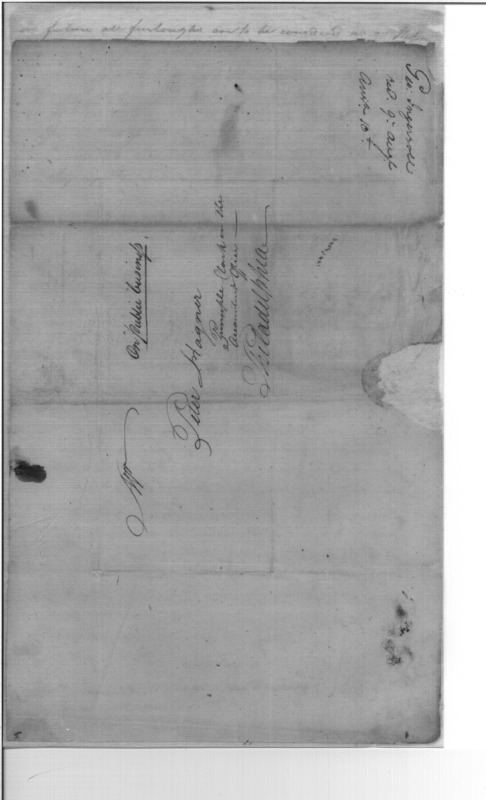 in future all furloughs are to be considered as
Geo. Ingersoll
red. 9th. Augt
Ansr. 10th
On Public business.
Mr
Peter Hagner
Principle Clerk in the
Accountant Office
Philadelphia